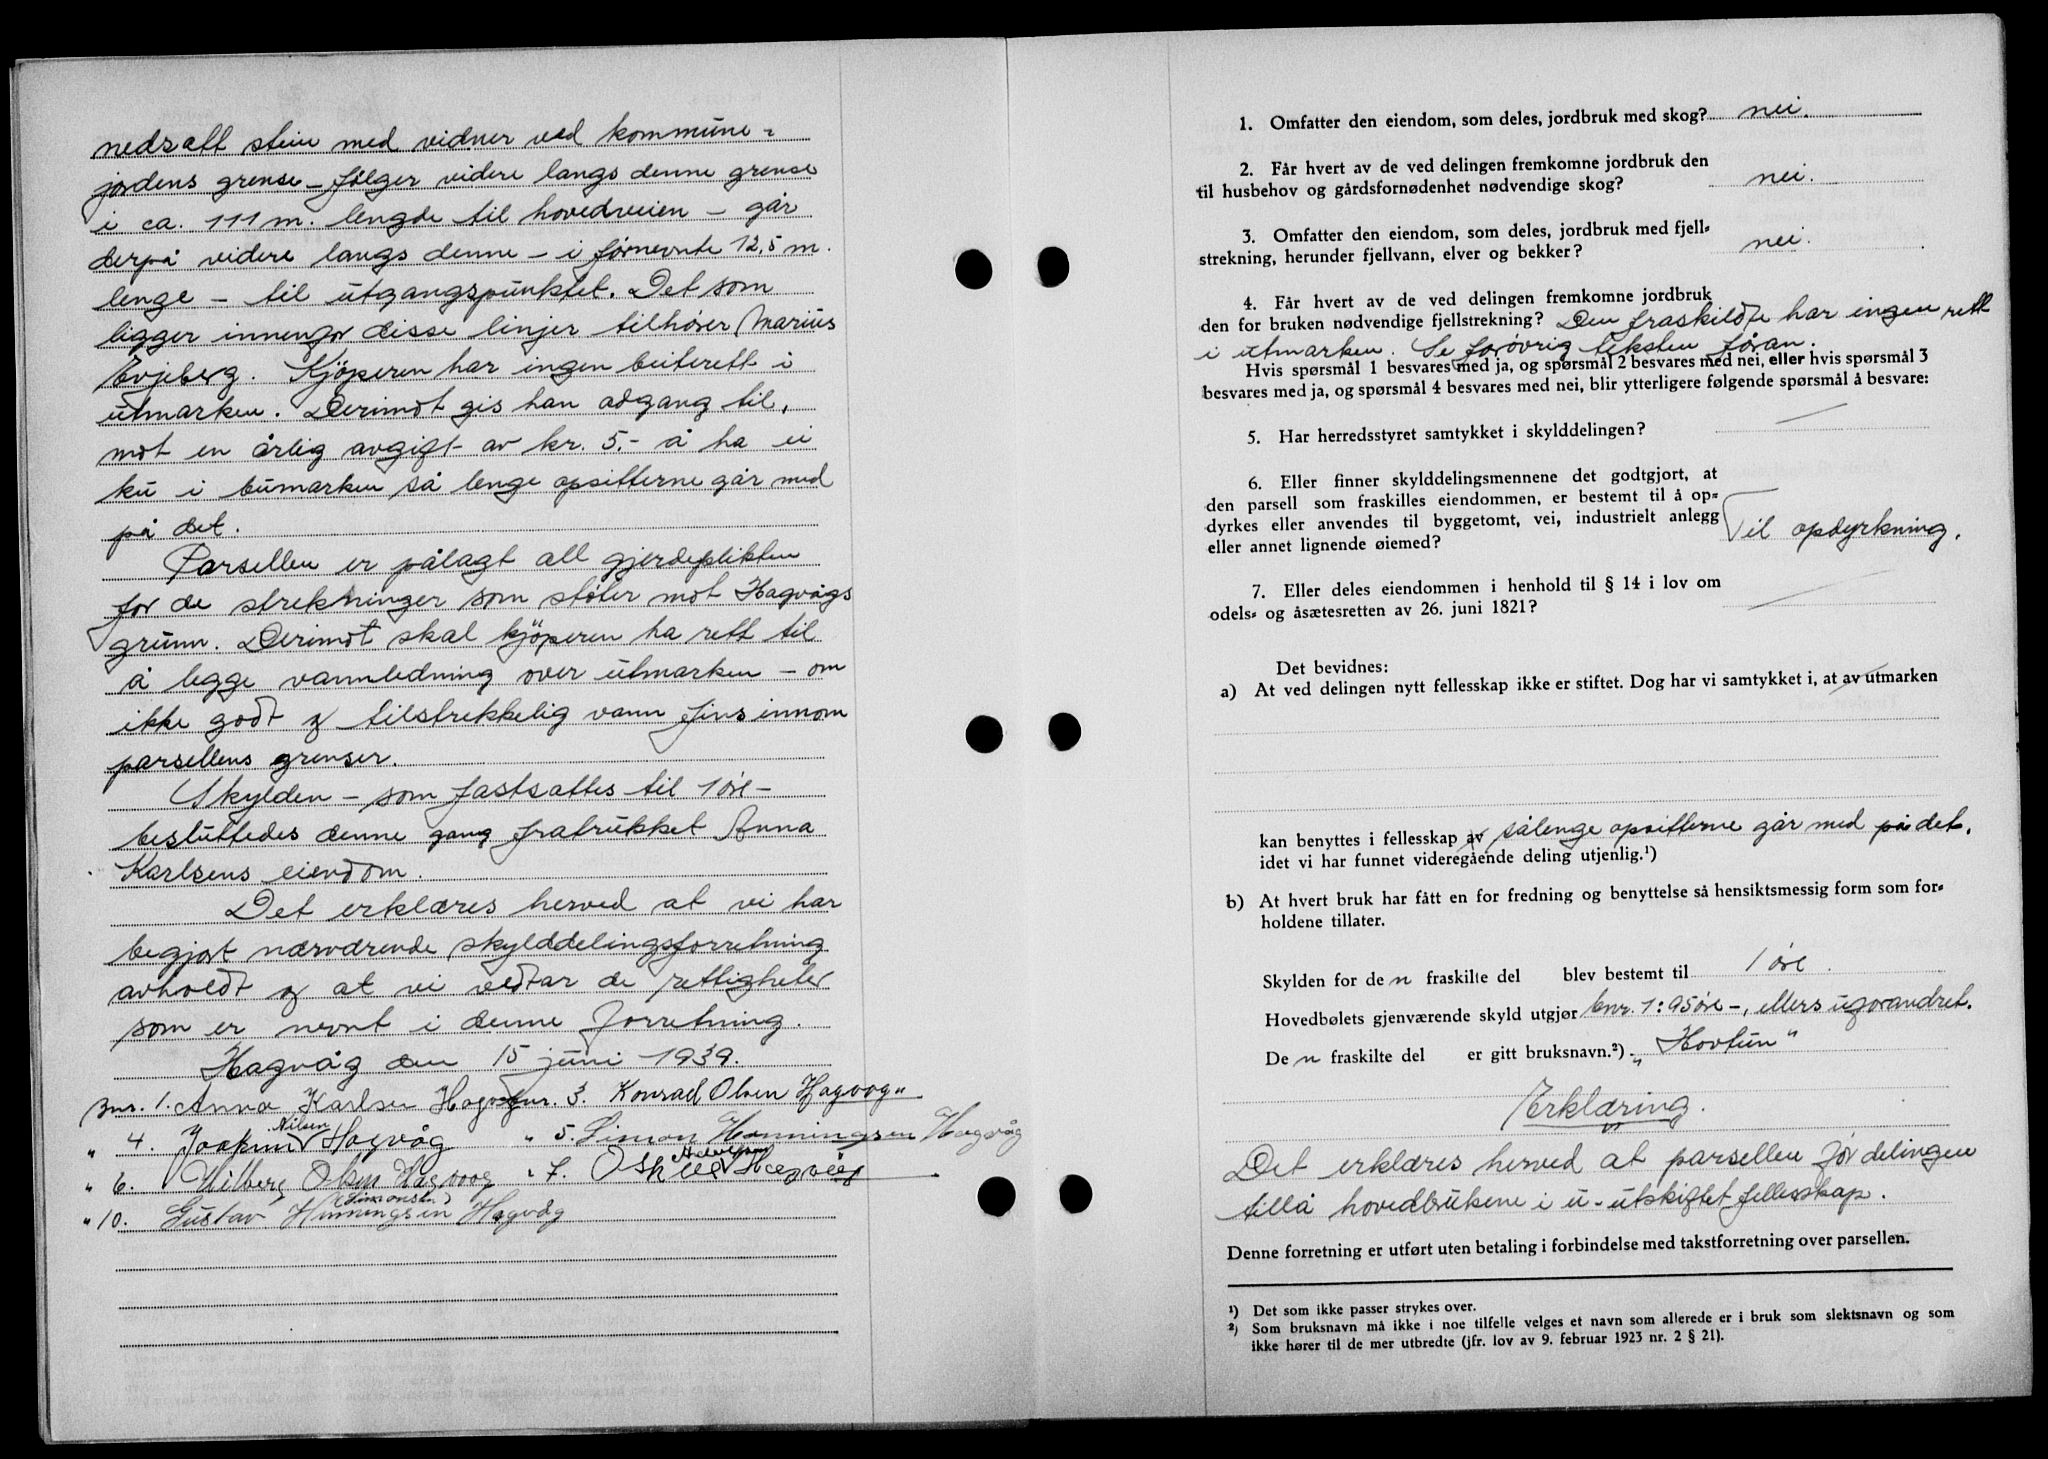 nedsatt stein med vidner ved kommune-
jordens grense - følger videre langs denne grense
i ca. 111 m. lengde til hovedveien - går
derpå videre langs denne - i førnevnte 12,5 m.
lenge - til utgangspunktet. Det som
ligger innenfor disse linjer tilhører Marius
Evjeberg. Kjöperen har ingen beiterett i
utmarken. Derimot gis han adgang til,
mot en årlig avgift av kr. 5.- å ha ei
ku i bumarken så lenge opsitterne går med
på det.
Parsellen er pålagt all gjerdeplikten
for de strekninger som støter mot Hagvågs
grunn. Derimot skal kjöperen ha rett til
å legge vannledning over utmarken - om
ikke godt og tilstrekkelig vann fins innom
parsellens grenser.
Skylden - som fastsattes til 1 øre -
besluttedes denne gang fratrukket Anna
Karlsens eiendom.
Det erklæres herved at vi har
begjært nærværende skylddelingsforretning
avholdt og at vi vedtar de rettigheter
som er nevnt i denne forretning.
Hagvåg den 15 juni 1939.
Bnr. 1. Anna Karlsen Hagvåg bnr. 3. Konrad Olsen Hagvog"
" 4. Joakim Nilsen Hagvåg " 5. Simon Henningsen Hagvåg
" 6. Hilberg Olsen Hagvog " 7. Oskar Hagvåg
" 10. Gustav (Simonsen) Henningsen Hagvåg
1. Omfatter den eiendom, som deles, jordbruk med skog? nei.
2. Får hvert av de ved delingen fremkomne jordbruk den
til husbehov og gårdsfornødenhet nødvendige skog? nei.
3. Omfatter den eiendom, som deles, jordbruk med fjell-
strekning, herunder fjellvann, elver og bekker? nei.
4. Får hvert av de ved delingen fremkomne jordbruk
den for bruken nødvendige fjellstrekning? Den fraskildte har ingen rett
i utmarken. Se forøvrig teksten foran.
Hvis spørsmål 1 besvares med ja, og spørsmål 2 besvares med nei, eller hvis spørsmål 3
besvares med ja, og spørsmål 4 besvares med nei, blir ytterligere følgende spørsmål å besvare:
5. Har herredsstyret samtykket i skylddelingen?
6. Eller finner skylddelingsmennene det godtgjort, at
den parsell som fraskilles eiendommen, er bestemt til å op-
dyrkes eller anvendes til byggetomt, vei, industrielt anlegg
eller annet lignende øiemed? Til opdyrkning.
7. Eller deles eiendommen i henhold til § 14 i lov om
odels- og åsætesretten av 26. juni 1821?
Det bevidnes:
a) At ved delingen nytt fellesskap ikke er stiftet. Dog har vi samtykket i, at av utmarken
kan benyttes i fellesskap av sålenge opsitterne går med på det.
idet vi har funnet videregående deling utjenlig.¹)
b) At hvert bruk har fått en for fredning og benyttelse så hensiktsmessig form som for-
holdene tillater.
Skylden for de n fraskilte del blev bestemt til 1 øre.
Hovedbølets gjenværende skyld utgjør bnr. 1: 95 øre -, ellers uforandret.
De n fraskilte del er gitt bruksnavn.²) "Hovtun"
Erklæring.
Det erklæres herved at parsellen før delingen
tillå hovedbrukene i u-utskiftet fellesskap.
Denne forretning er utført uten betaling i forbindelse med takstforretning over parsellen.
¹) Det som ikke passer strykes over.
²) Som bruksnavn må ikke i noe tilfelle velges et navn som allerede er i bruk som slektsnavn og som
ikke hører til de mer utbredte (jfr. lov av 9. februar 1923 nr. 2 § 21).